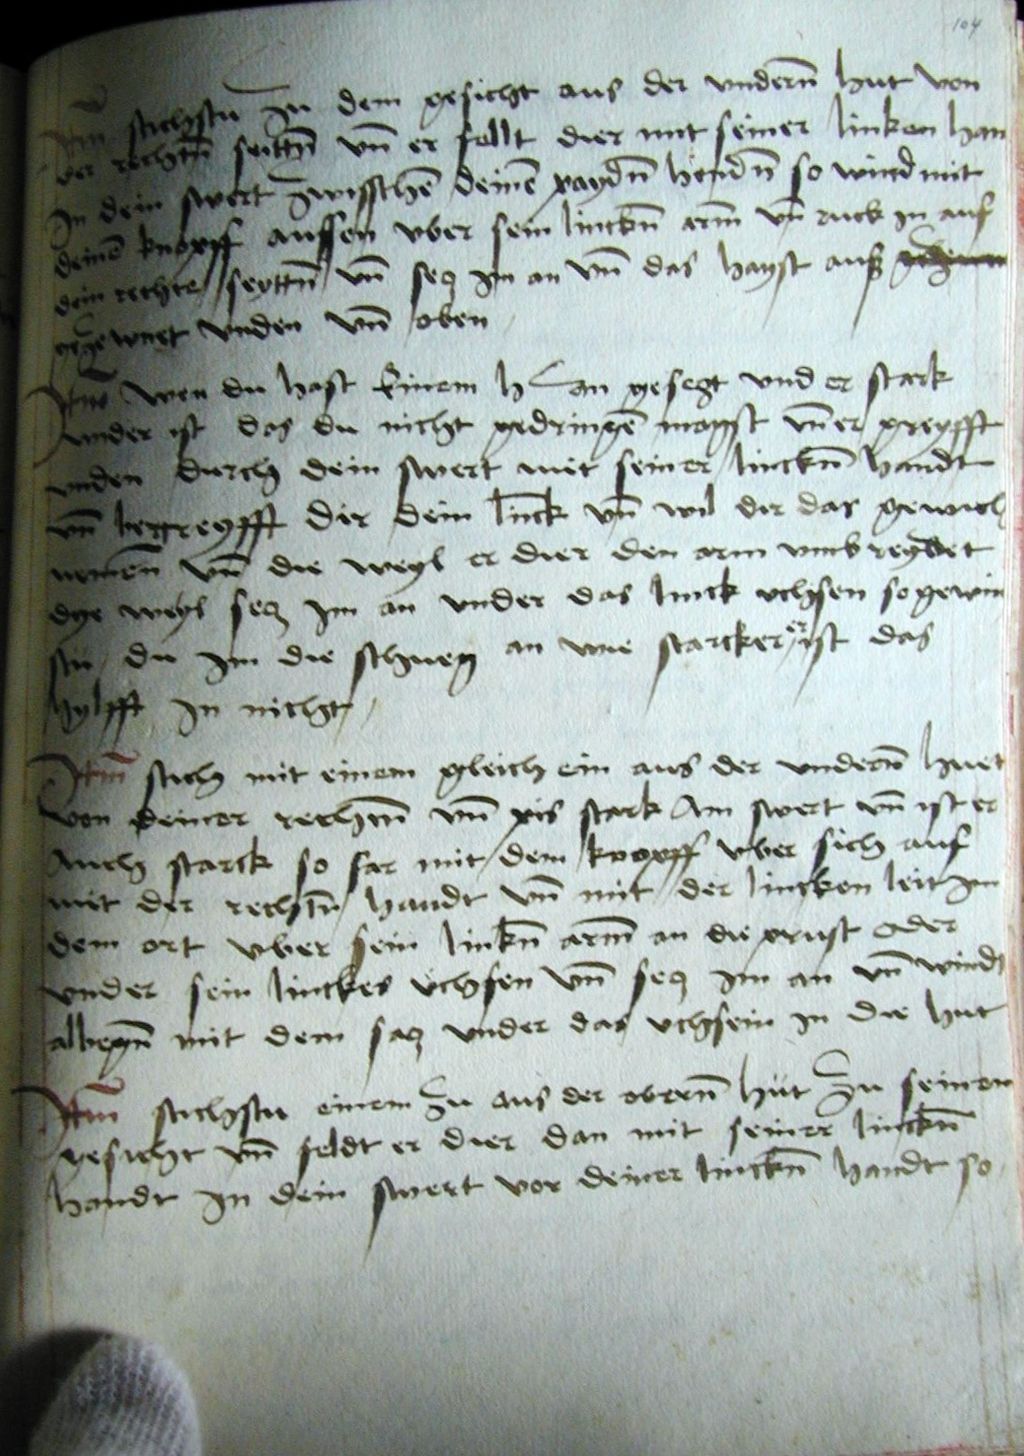 104
Itm̄ stichstu zu dem gesicht aus der vnderñ hut von
der rechtñ seittñ vñ er fellt dier mit seiner linken han
In dein swert zwisschē deinē payd̄n hend̄n so wind mit
deinē knopff aussen vber sein linckñ arm̄ vñ ruck in auf
dein rechte seyttñ vñ secz im an vñ das hayst auß
gegewnet vnden vñ oben
Itm̄ wen du hast Einem h an gesegt vnd er stark
vnder ist das du nicht gedringē magst vñ er greyfft
vnden durch dein swert mit seiner linckñ handt
vñ begreyfft dir dein linck vñ wil dir das gewich
nemen̄ vñ die weyl er dier den arm vmb reybet
dye weyl secz im an vnder das linck vchsen so gewin
stu du im die schneg an wie starcker er ist das
hylfft in nicht
Itm̄ stich mit einem gleich ein aus der vnderñ huet
von deiner rechtñ vñ pis stark Am swert vñ ist er
Auch starck so far mit dem knopff vber sich auf
mit der rechtñ handt vñ mit der lincken leit im
dem ort vber sein linkñ arm̄ an die prust oder
vnder sein linckes vchsen vñ secz im an vñ windt
albegñ mit dem sacz vnder das vchsein in die hut
Itm̄ stichstu einem zu aus der oberñ hüt zu seinem
gesicht vñ feldt er dier dan mit seiner linckñ
handt In dein swert vor deiner linckñ handt so